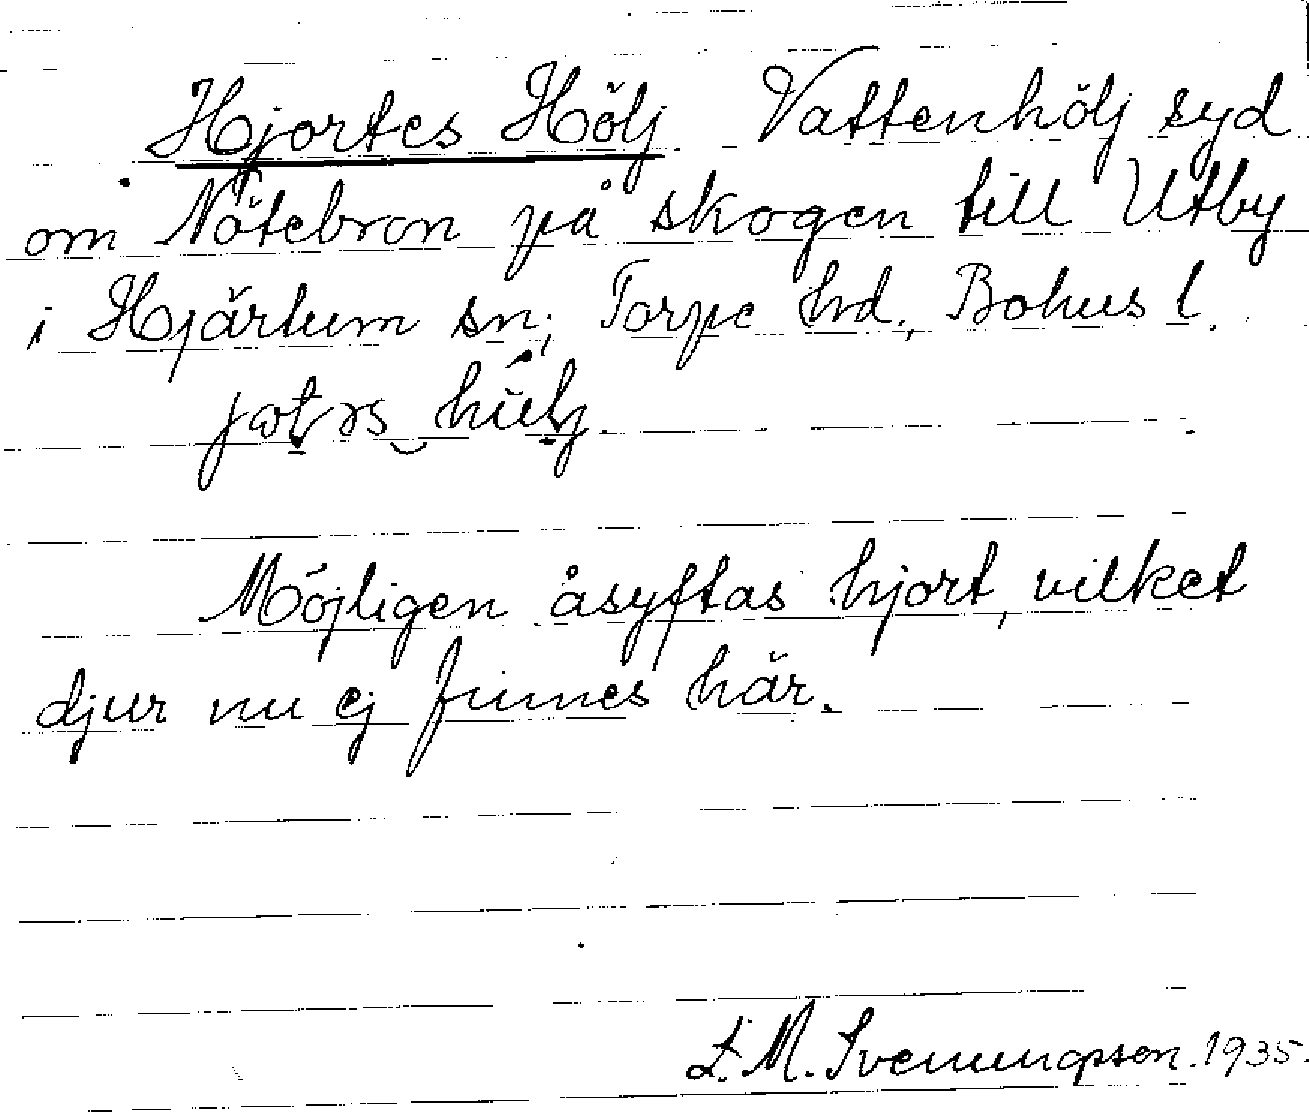 Hjortes Hölj. Vattenhölj syd
om Nötebron på skogen till Utby
i Hjärtum sn, Torpe hd., Bohus l.
Möjligen åsyftas hjort, vilket
djur nu ej finnes här.
L. M. Svenungsson. 1935.